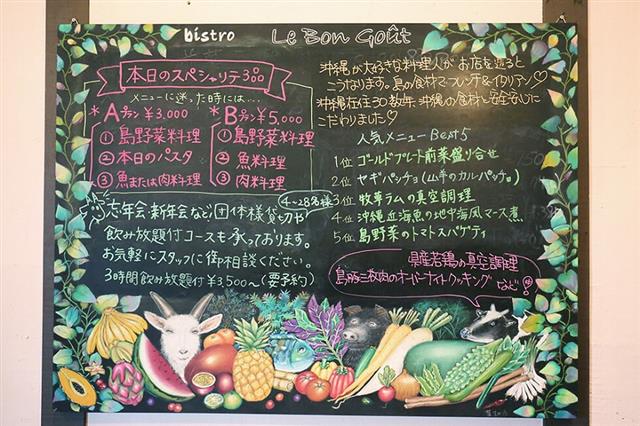 bistro Le Bon Goût
本日のスペシャリテ3品
メニューに迷った時には…
*Aプラン ¥3,000
① 島野菜料理
② 本日のパスタ
③ 魚または肉料理
*Bプラン ¥5,000
① 島野菜料理
② 魚料理
③ 肉料理
沖縄が大好きな料理人がお店を造ると
こうなります。島の食材でフレンチ&イタリアン♡
沖縄在住30数年、沖縄の食材と安全安心に
こだわりました♡
人気メニュー Best5
1位 ゴールドプレート前菜盛り合せ
2位 ヤギパッチョ(山羊のカルパッチョ)
3位 牧草ラムの真空調理
4位 沖縄近海魚の地中海風マース煮
5位 島野菜のトマトスパゲティ
県産若鶏の真空調理
島豚三枚肉のオーバーナイトクッキング
など
忘年会・新年会など団体様貸切や
4~28名様
飲み放題付コースも承っております。
お気軽にスタッフに御相談ください。
3時間飲み放題付¥3,500~(要予約)